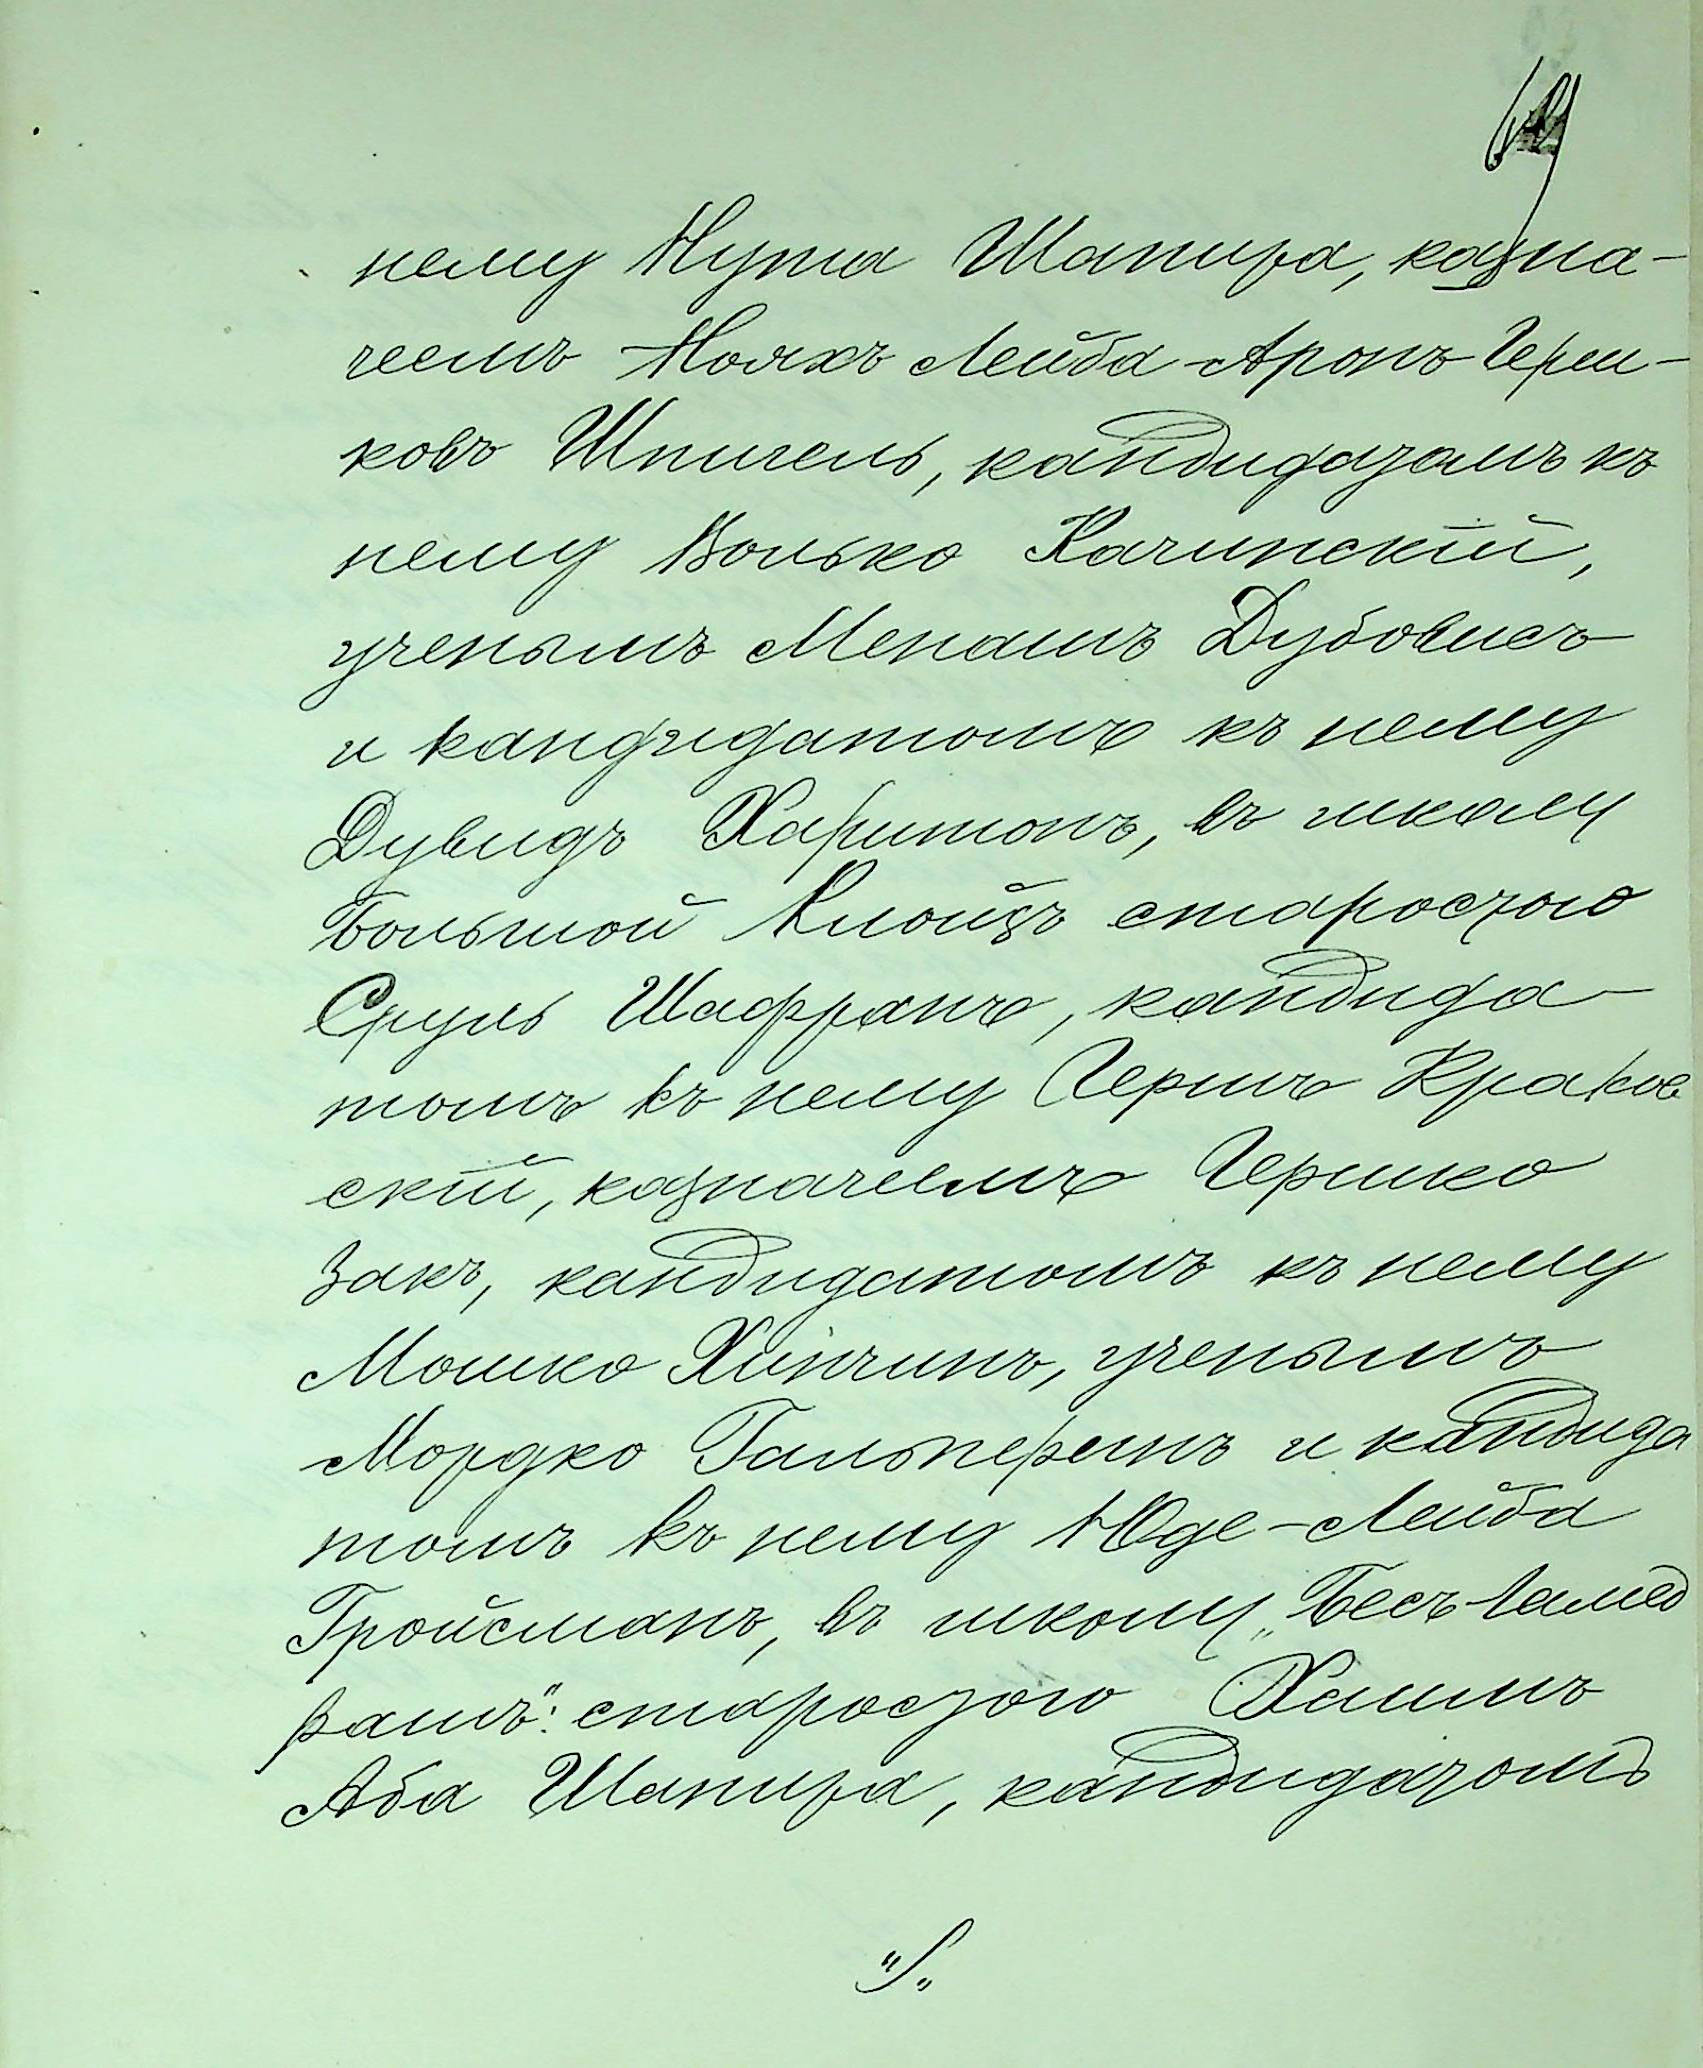 нему Нута Шапира, казна-
чеемъ Нояхъ Лейба-Аронъ Герш-
ковъ Шпигель, кандидатомъ къ
нему Волько Качинскій,
ученымъ Менашъ Дубовисъ
и кандидатомъ къ нему
Дувидъ Харитонъ, въ школу
Большой Клойзъ старостою
Сруль Шафранъ, кандида-
томъ къ нему Гершъ Краков
скій, казначеемъ Гершко
Закъ, кандидатомъ къ нему
Мошко Хинчинъ, ученымъ
Мордко Гальперинъ и кандида
томъ къ нему Юде-Лейба
Гройсманъ, въ школу „Бесъ-Гамед
рашъ": старостою Хаимъ
Аба Шапира, кандидатомъ